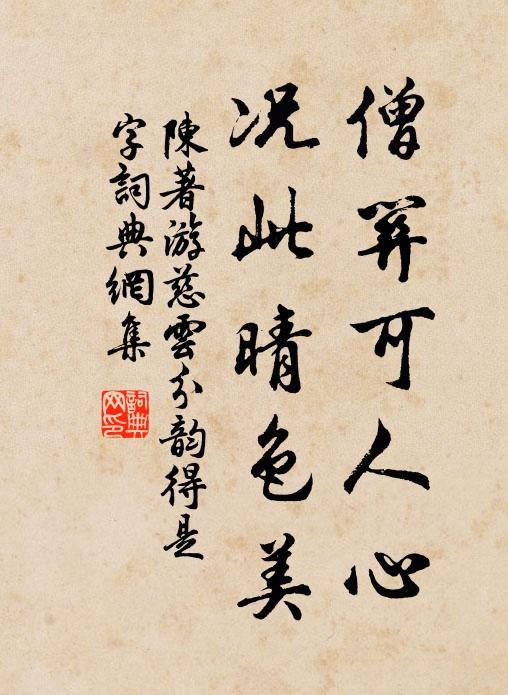 僧可人心
况此晴色美
陳著游慈雲分韵得是
字詞典網集
詞典
网印